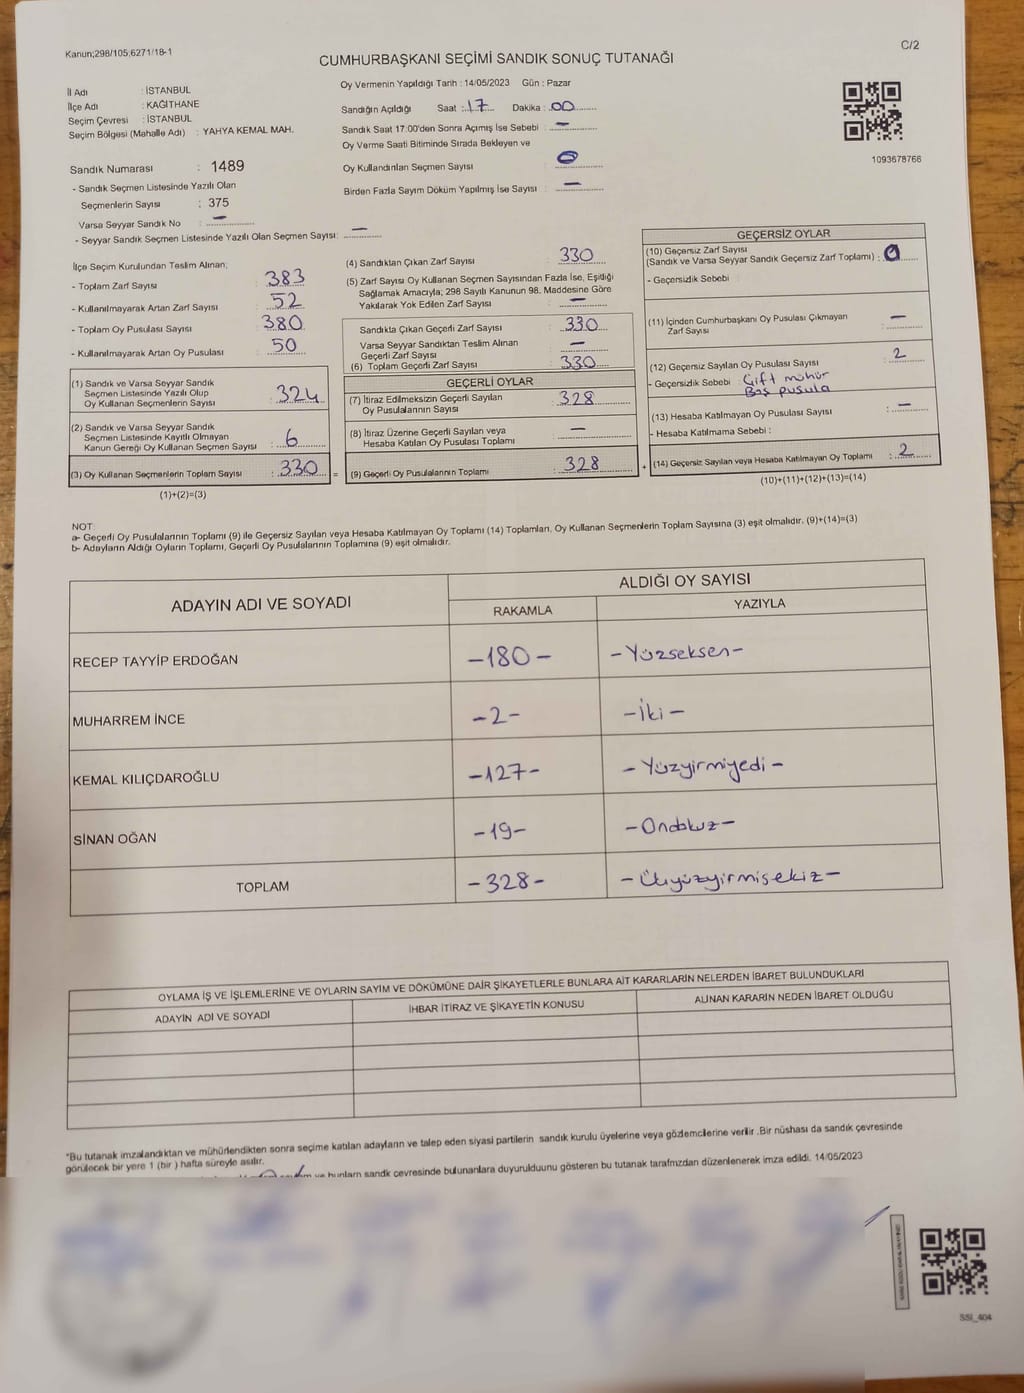 Kanun;298/105;6271/18-1
C/2
CUMHURBAŞKANI SEÇİMİ SANDIK SONUÇ TUTANAĞI
İl Adı : İSTANBUL
İlçe Adı : KAĞITHANE
Seçim Çevresi : İSTANBUL
Seçim Bölgesi (Mahalle Adı) : YAHYA KEMAL MAH.
Sandık Numarası : 1489
- Sandık Seçmen Listesinde Yazılı Olan
Seçmenlerin Sayısı : 375
Varsa Seyyar Sandık No : —
- Seyyar Sandık Seçmen Listesinde Yazılı Olan Seçmen Sayısı: —
Oy Vermenin Yapıldığı Tarih : 14/05/2023 Gün : Pazar
Sandığın Açıldığı Saat : 17 Dakika : 00
Sandık Saat 17:00'den Sonra Açımış İse Sebebi : —
Oy Verme Saati Bitiminde Sırada Bekleyen ve
Oy Kullandırılan Seçmen Sayısı : 0
Birden Fazla Sayım Döküm Yapılmış İse Sayısı : —
1093678766
İlçe Seçim Kurulundan Teslim Alınan;
- Toplam Zarf Sayısı : 383
- Kullanılmayarak Artan Zarf Sayısı : 52
- Toplam Oy Pusulası Sayısı : 380
- Kullanılmayarak Artan Oy Pusulası : 50
(1) Sandık ve Varsa Seyyar Sandık
Seçmen Listesinde Yazılı Olup
Oy Kullanan Seçmenlerin Sayısı : 324
(2) Sandık ve Varsa Seyyar Sandık
Seçmen Listesinde Kayıtlı Olmayan
Kanun Gereği Oy Kullanan Seçmen Sayısı : 6
(3) Oy Kullanan Seçmenlerin Toplam Sayısı : 330
(1)+(2)=(3)
(4) Sandıktan Çıkan Zarf Sayısı : 330
(5) Zarf Sayısı Oy Kullanan Seçmen Sayısından Fazla İse, Eşitliği
Sağlamak Amacıyla; 298 Sayılı Kanunun 98. Maddesine Göre
Yakılarak Yok Edilen Zarf Sayısı : —
Sandıkta Çıkan Geçerli Zarf Sayısı : 330
Varsa Seyyar Sandıktan Teslim Alınan
Geçerli Zarf Sayısı : —
(6) Toplam Geçerli Zarf Sayısı : 330
=
GEÇERLİ OYLAR
(7) İtiraz Edilmeksizin Geçerli Sayılan
Oy Pusulalarının Sayısı : 328
(8) İtiraz Üzerine Geçerli Sayılan veya
Hesaba Katılan Oy Pusulası Toplamı : —
(9) Geçerli Oy Pusulalarının Toplamı : 328
+
GEÇERSİZ OYLAR
(10) Geçersiz Zarf Sayısı
(Sandık ve Varsa Seyyar Sandık Geçersiz Zarf Toplamı) : 0
- Geçersizlik Sebebi
(11) İçinden Cumhurbaşkanı Oy Pusulası Çıkmayan
Zarf Sayısı : —
(12) Geçersiz Sayılan Oy Pusulası Sayısı : 2
- Geçersizlik Sebebi : Çift mühür
Boş pusula
(13) Hesaba Katılmayan Oy Pusulası Sayısı : —
- Hesaba Katılmama Sebebi :
(14) Geçersiz Sayılan veya Hesaba Katılmayan Oy Toplamı : 2
(10)+(11)+(12)+(13)=(14)
NOT:
a- Geçerli Oy Pusulalarının Toplamı (9) ile Geçersiz Sayılan veya Hesaba Katılmayan Oy Toplamı (14) Toplamları, Oy Kullanan Seçmenlerin Toplam Sayısına (3) eşit olmalıdır. (9)+(14)=(3)
b- Adayların Aldığı Oyların Toplamı, Geçerli Oy Pusulalarının Toplamına (9) eşit olmalıdır.
ADAYIN ADI VE SOYADI
ALDIĞI OY SAYISI
RAKAMLA YAZIYLA
RECEP TAYYİP ERDOĞAN -180- -Yüzseksen-
MUHARREM İNCE -2- -İki-
KEMAL KILIÇDAROĞLU -127- -Yüzyirmiyedi-
SİNAN OĞAN -19- -Ondokuz-
TOPLAM -328- -Üçyüzyirmisekiz-
OYLAMA İŞ VE İŞLEMLERİNE VE OYLARIN SAYIM VE DÖKÜMÜNE DAİR ŞİKAYETLERLE BUNLARA AİT KARARLARIN NELERDEN İBARET BULUNDUKLARI
ADAYIN ADI VE SOYADI İHBAR İTİRAZ VE ŞİKAYETİN KONUSU ALINAN KARARIN NEDEN İBARET OLDUĞU
*Bu tutanak imzalandıktan ve mühürlendikten sonra seçime katılan adayların ve talep eden siyasi partilerin sandık kurulu üyelerine veya gözlemcilerine verilir .Bir nüshası da sandık çevresinde
görülecek bir yere 1 (bir ) hafta süreyle asılır.
ve bunların sandık çevresinde bulunanlara duyurulduunu gösteren bu tutanak tarafımızdan düzenlenerek imza edildi. 14/05/2023
SSI_404